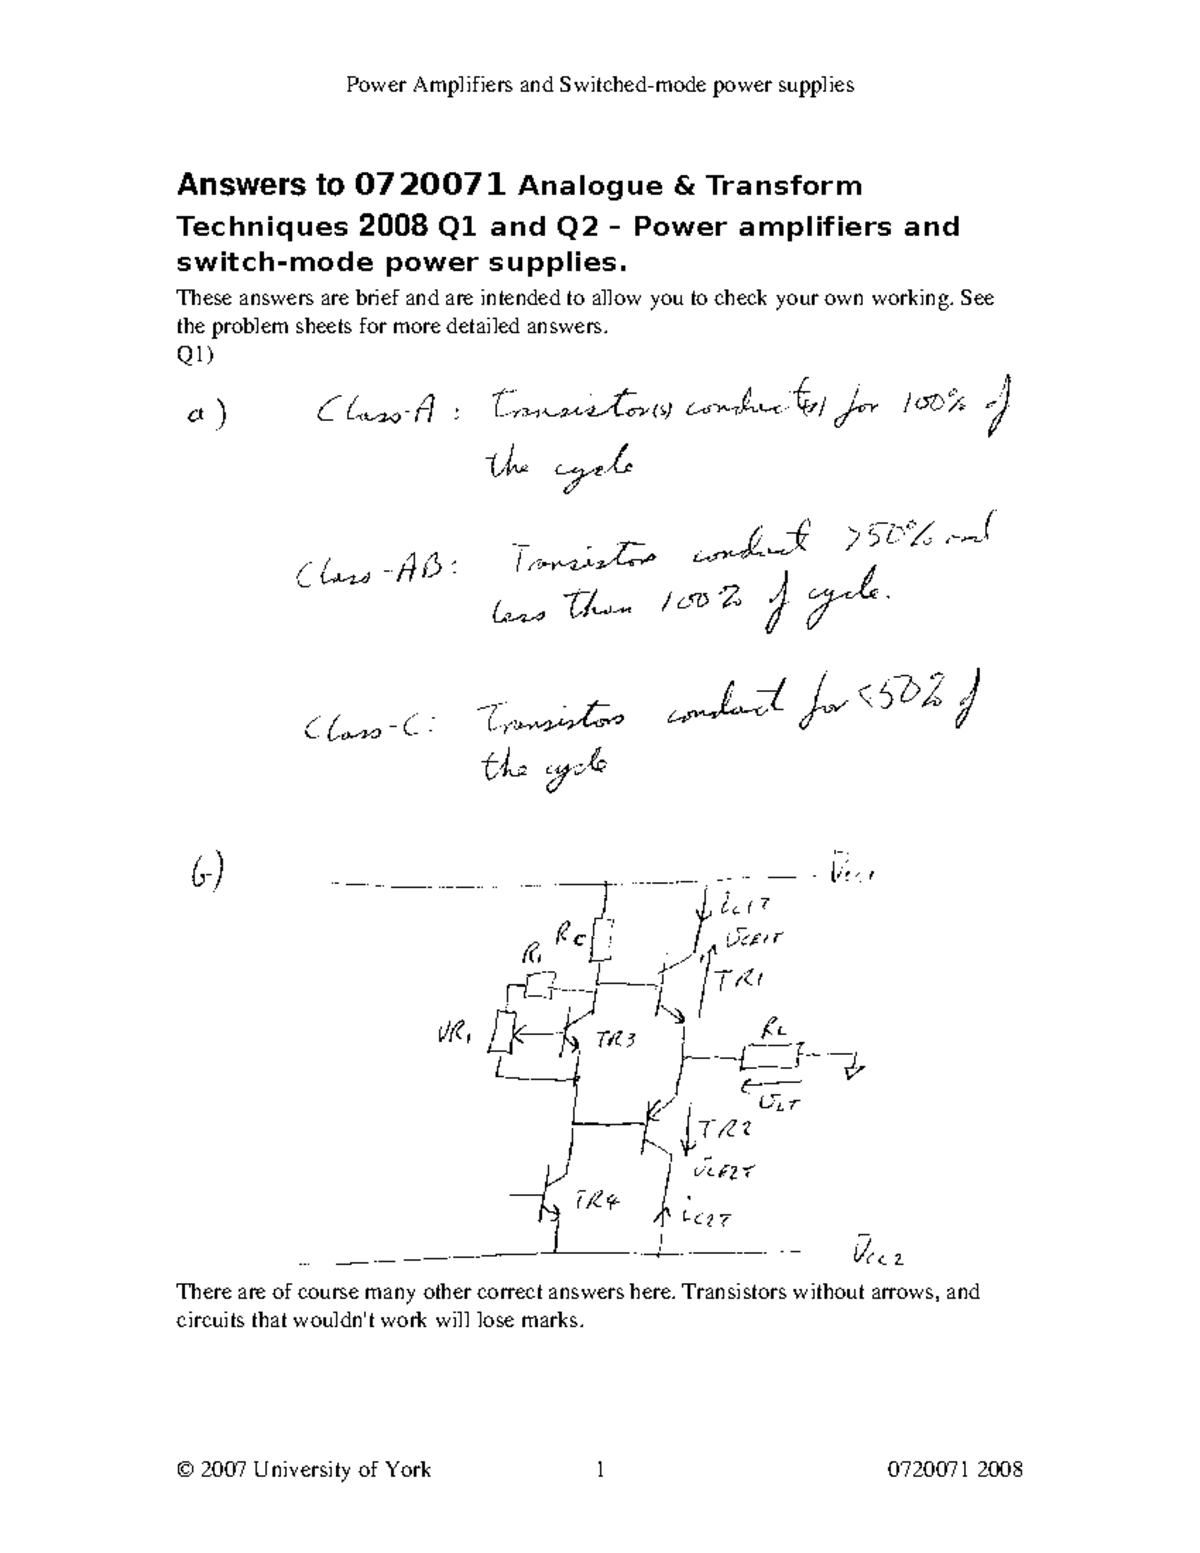 Power Amplifiers and Switched-mode power supplies
Answers to 0720071 Analogue & Transform
Techniques 2008 Q1 and Q2 – Power amplifiers and
switch-mode power supplies.
These answers are brief and are intended to allow you to check your own working. See
the problem sheets for more detailed answers.
Q1)
a) Class-A: Transistor(s) conduct(s) for 100% of
the cycle
Class-AB: Transistors conduct >50% and
less than 100% of cycle.
Class-C: Transistors conduct for <50% of
the cycle
b)
VCC1
iC1T
RC
vCE1T
R1
TR1
VR1
TR3
RL
vLT
TR2
vCE2T
TR4
iC2T
VCC2
There are of course many other correct answers here. Transistors without arrows, and
circuits that wouldn't work will lose marks.
© 2007 University of York 1 0720071 2008